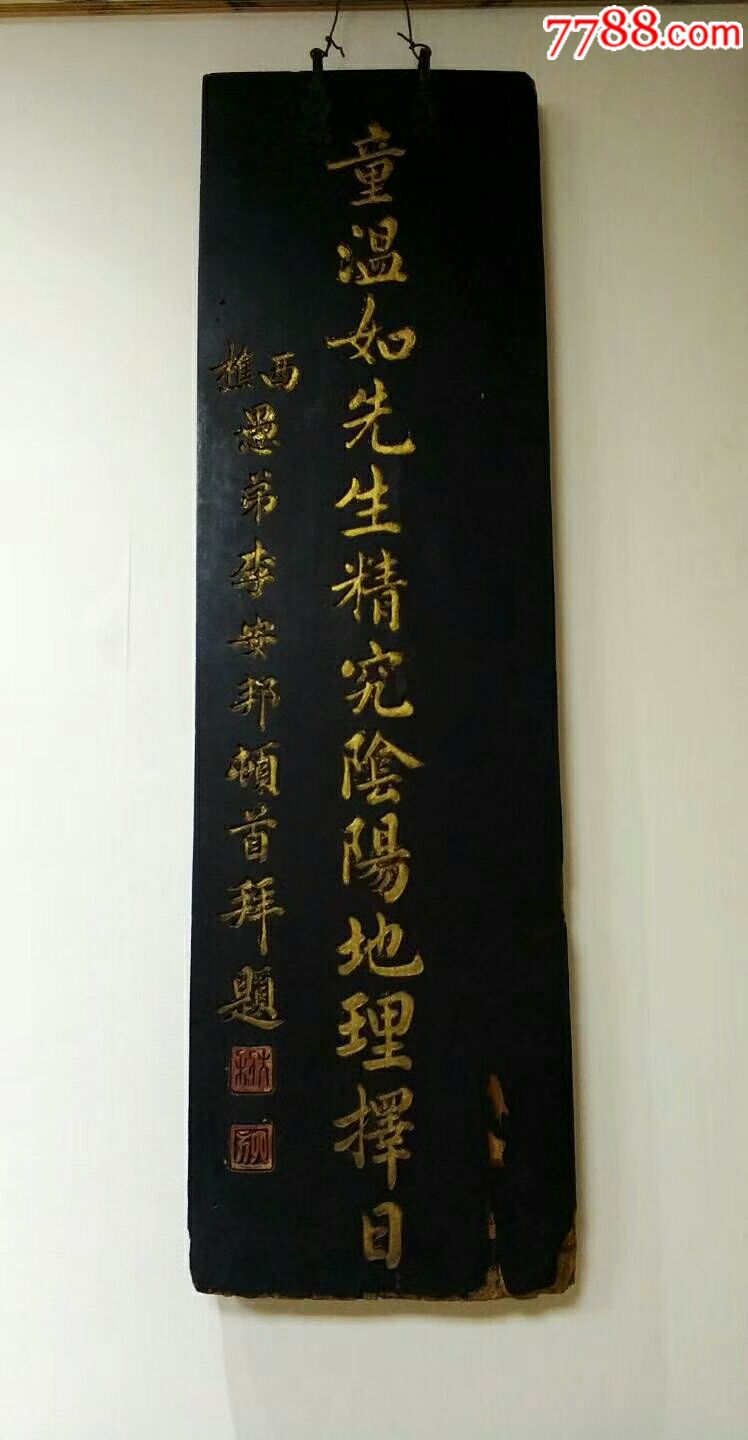 7788.com
童溫如先生精究陰陽地理擇日
西樵愚弟李安邦頓首拜題